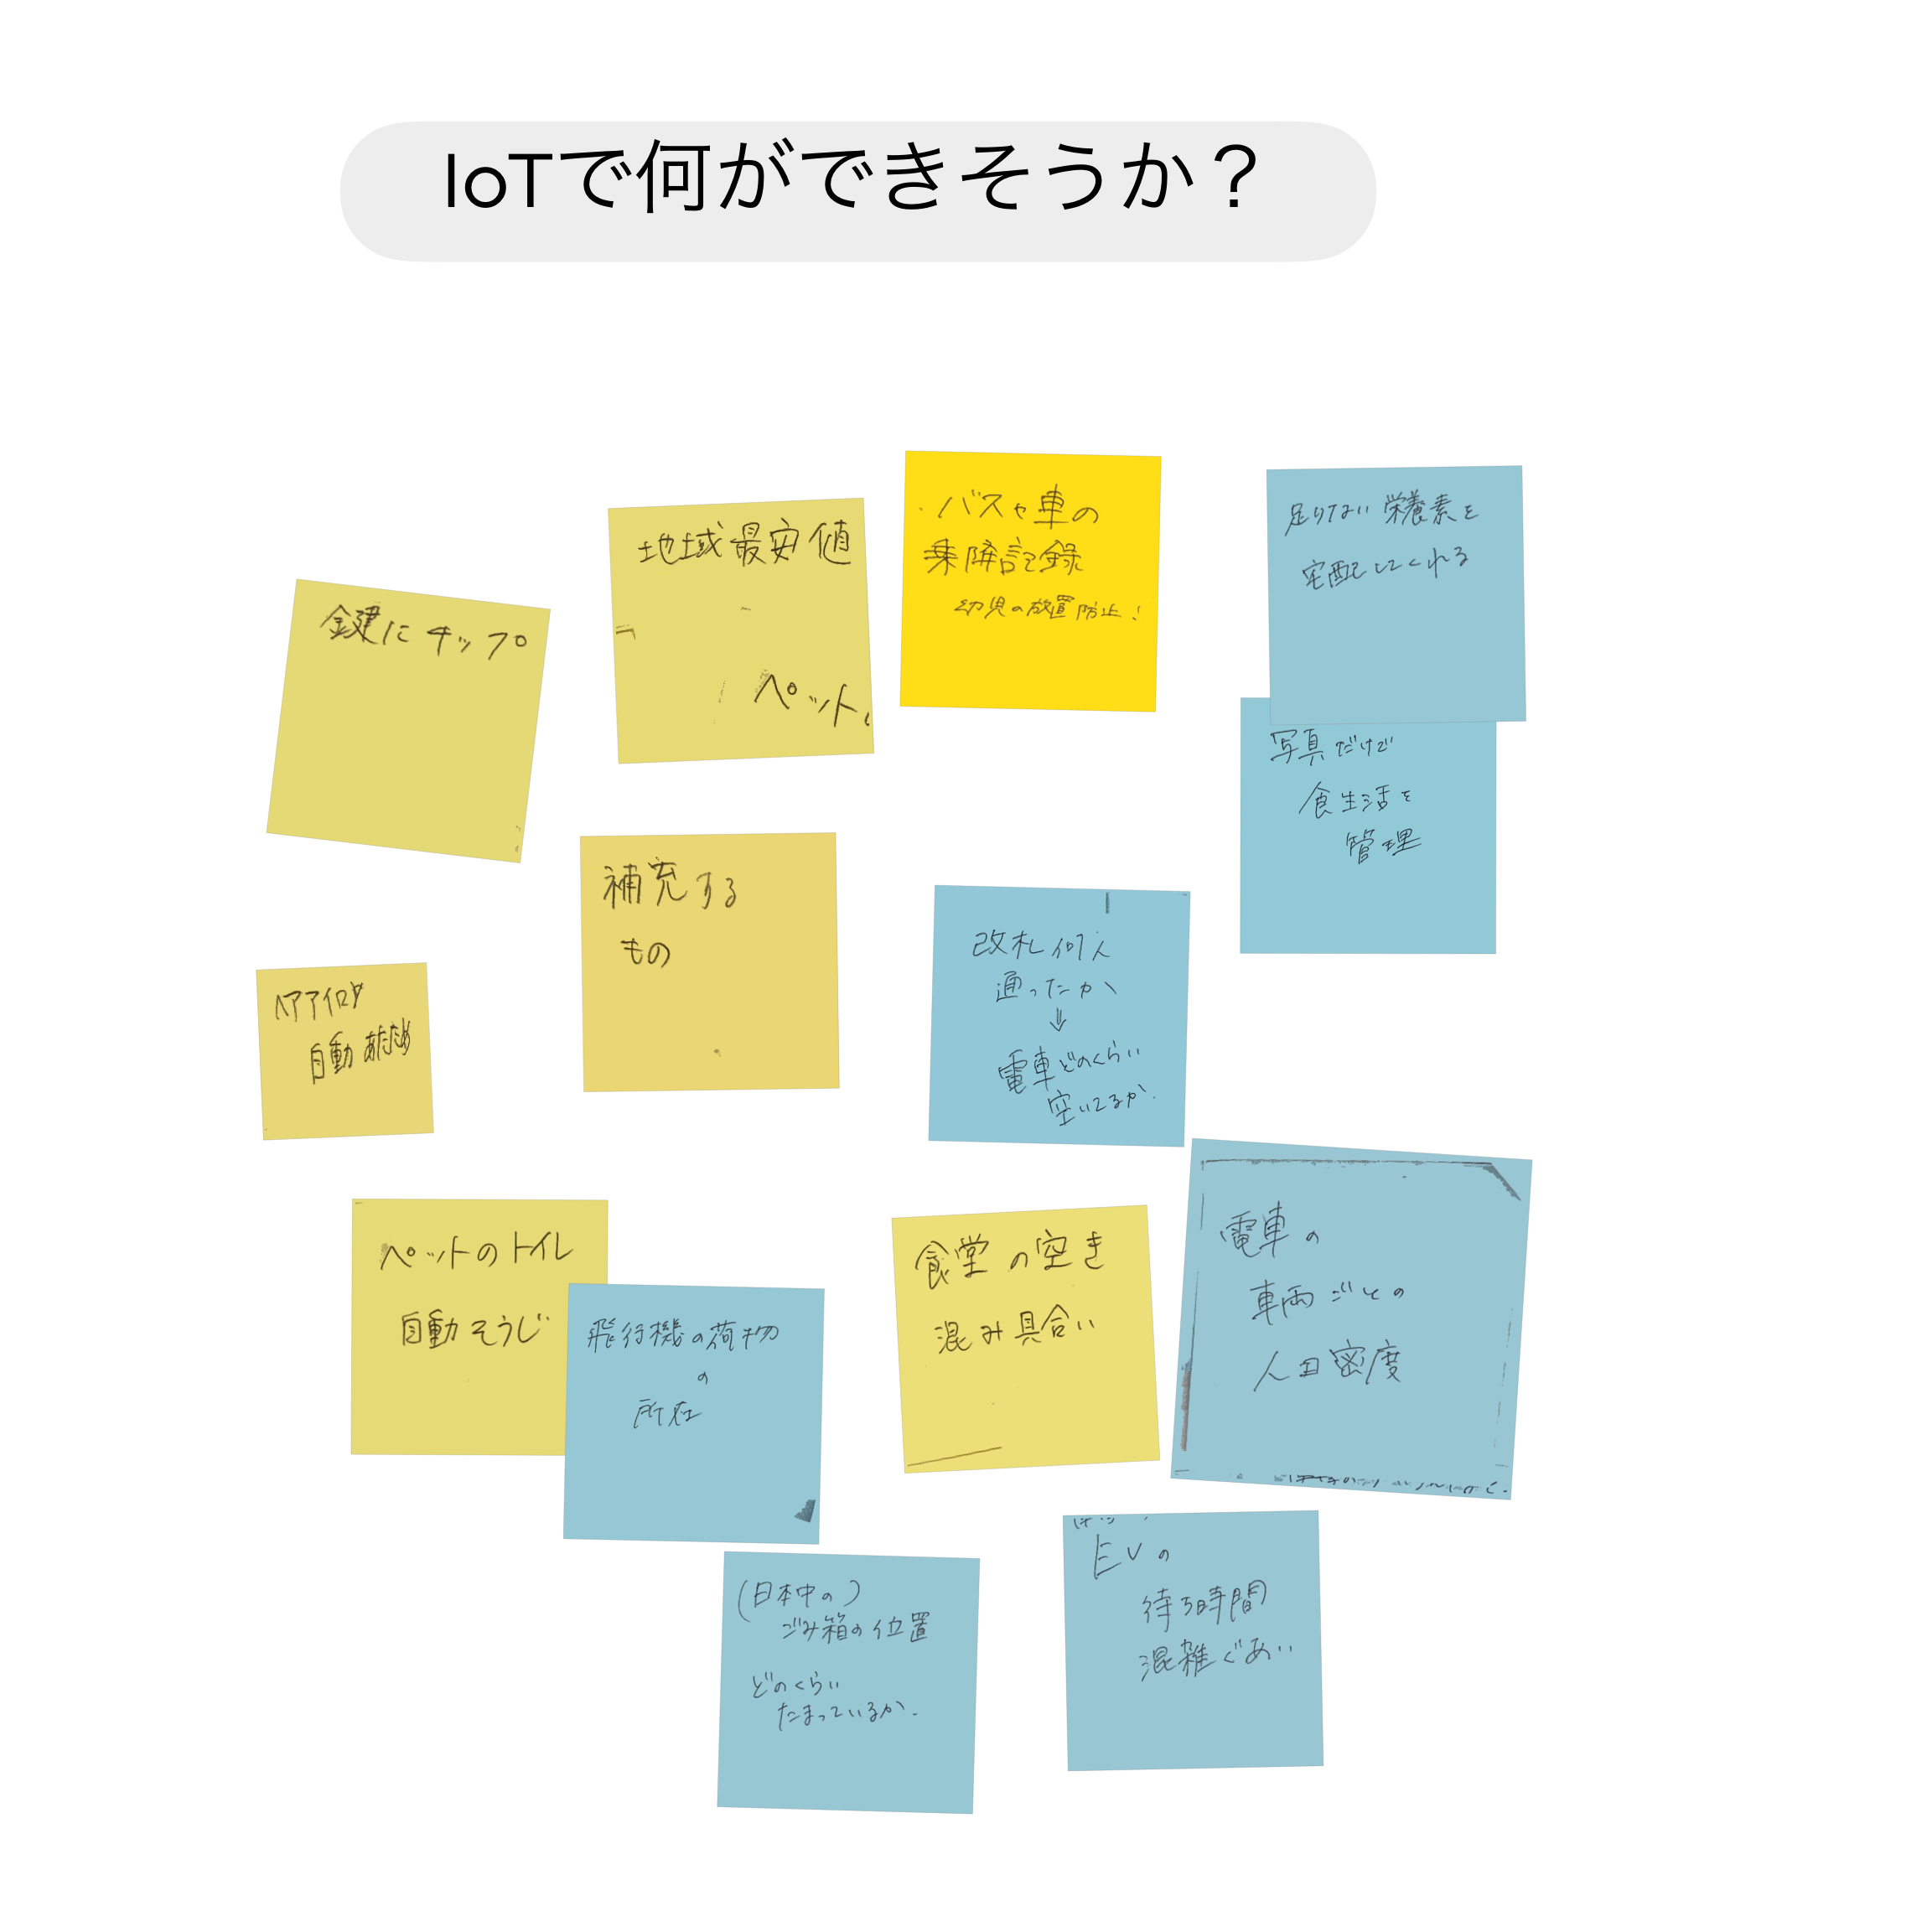 IoTで何ができそうか？
鍵にチップ
地域最安値
ペット
バスや車の
乗降記録
幼児の放置防止！
足りない栄養素を
宅配してくれる
写真だけで
食生活を
管理
補充する
もの
改札何人
通ったか
⇓
電車どのくらい
空いてるか.
ヘアアイロン
自動あたため
ペットのトイレ
自動そうじ
飛行機の荷物
の
所在
食堂の空き
混み具合い
電車の
車両ごとの
人口密度
(日本中の)
ごみ箱の位置
どのくらい
たまっているか.
EVの
待ち時間
混雑ぐあい